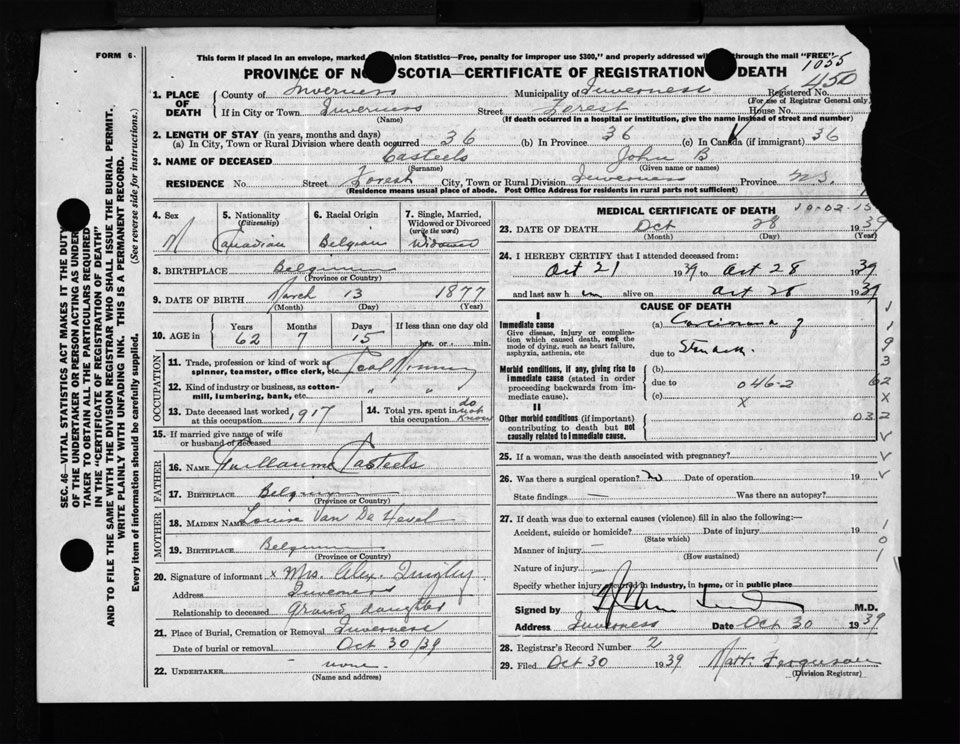 FORM 6.
This form if placed in an envelope, marked nion Statistics—Free, penalty for improper use $300," and properly addressed wi through the mail "FREE"
1055
PROVINCE OF NO SCOTIA—CERTIFICATE OF REGISTRATION DEATH
450
1. PLACE OF DEATH
County of Inverness Municipality of Inverness Registered No.
(For use of Registrar General only)
If in City or Town Inverness Street Forest House No.
(Name) (If death occurred in a hospital or institution, give the name instead of street and number)
2. LENGTH OF STAY (in years, months and days)
(a) In City, Town or Rural Division where death occurred 36 (b) In Province 36 (c) In Canada (if immigrant) 36
3. NAME OF DECEASED Casteels John B
(Surname) (Given name or names)
RESIDENCE No. Street Forest City, Town or Rural Division Inverness Province N.S.
(Residence means usual place of abode. Post Office Address for residents in rural parts not sufficient)
4. Sex M
5. Nationality (Citizenship) Canadian
6. Racial Origin Belgian
7. Single, Married, Widowed or Divorced (write the word) Widower
8. BIRTHPLACE Belgium
(Province or Country)
9. DATE OF BIRTH March 13 1877
(Month) (Day) (Year)
10. AGE in Years Months Days If less than one day old
62 7 15 hrs. or min.
OCCUPATION
11. Trade, profession or kind of work as spinner, teamster, office clerk, etc.
12. Kind of industry or business, as cotton-mill, lumbering, bank, etc. " "
13. Date deceased last worked at this occupation 1917
14. Total yrs. spent in this occupation do not know
15. If married give name of wife or husband of deceased
FATHER
16. NAME Guillaume Casteels
17. BIRTHPLACE Belgium
(Province or Country)
MOTHER
18. MAIDEN NAME Louise Van De
19. BIRTHPLACE Belgium
(Province or Country)
20. Signature of informant x Mrs. Alex.
Address Inverness
Relationship to deceased grand daughter
21. Place of Burial, Cremation or Removal Inverness
Date of burial or removal Oct 30/39
22. UNDERTAKER none.
(Name and address)
MEDICAL CERTIFICATE OF DEATH 19-02-15
23. DATE OF DEATH Oct 28 1939
(Month) (Day) (Year)
24. I HEREBY CERTIFY that I attended deceased from:
Oct 21 1939 to Oct 28 1939
and last saw him alive on Oct 28 1939
CAUSE OF DEATH
I
Immediate cause (a) Carcinoma of
Give disease, injury or complication which caused death, not the mode of dying, such as heart failure, asphyxia, asthenia, etc
due to Stomach.
Morbid conditions, if any, giving rise to immediate cause (stated in order proceeding backwards from immediate cause)
(b)
due to 046-2 62
(c) x x
II
Other morbid conditions (if important) contributing to death but not causally related to immediate cause. 032
25. If a woman, was the death associated with pregnancy?
26. Was there a surgical operation? Date of operation 19
State findings — Was there an autopsy?
27. If death was due to external causes (violence) fill in also the following:—
Accident, suicide or homicide? Date of injury 19
(State which)
Manner of injury —
(How sustained)
Nature of injury —
Specify whether injury occurred in industry, in home, or in public place
Signed by M.D.
Address Inverness Date Oct 30 1939
28. Registrar's Record Number 2
29. Filed Oct 30 1939 Ferguson
(Division Registrar)
SEC. 46—VITAL STATISTICS ACT MAKES IT THE DUTY
OF THE UNDERTAKER OR PERSON ACTING AS UNDER
TAKER TO OBTAIN ALL THE PARTICULARS REQUIRED
IN THE "CERTIFICATE OF REGISTRATION OF DEATH"
AND TO FILE THE SAME WITH THE DIVISION REGISTRAR WHO SHALL ISSUE THE BURIAL PERMIT.
WRITE PLAINLY WITH UNFADING INK. THIS IS A PERMANENT RECORD.
Every item of information should be carefully supplied. (See reverse side for instructions.)